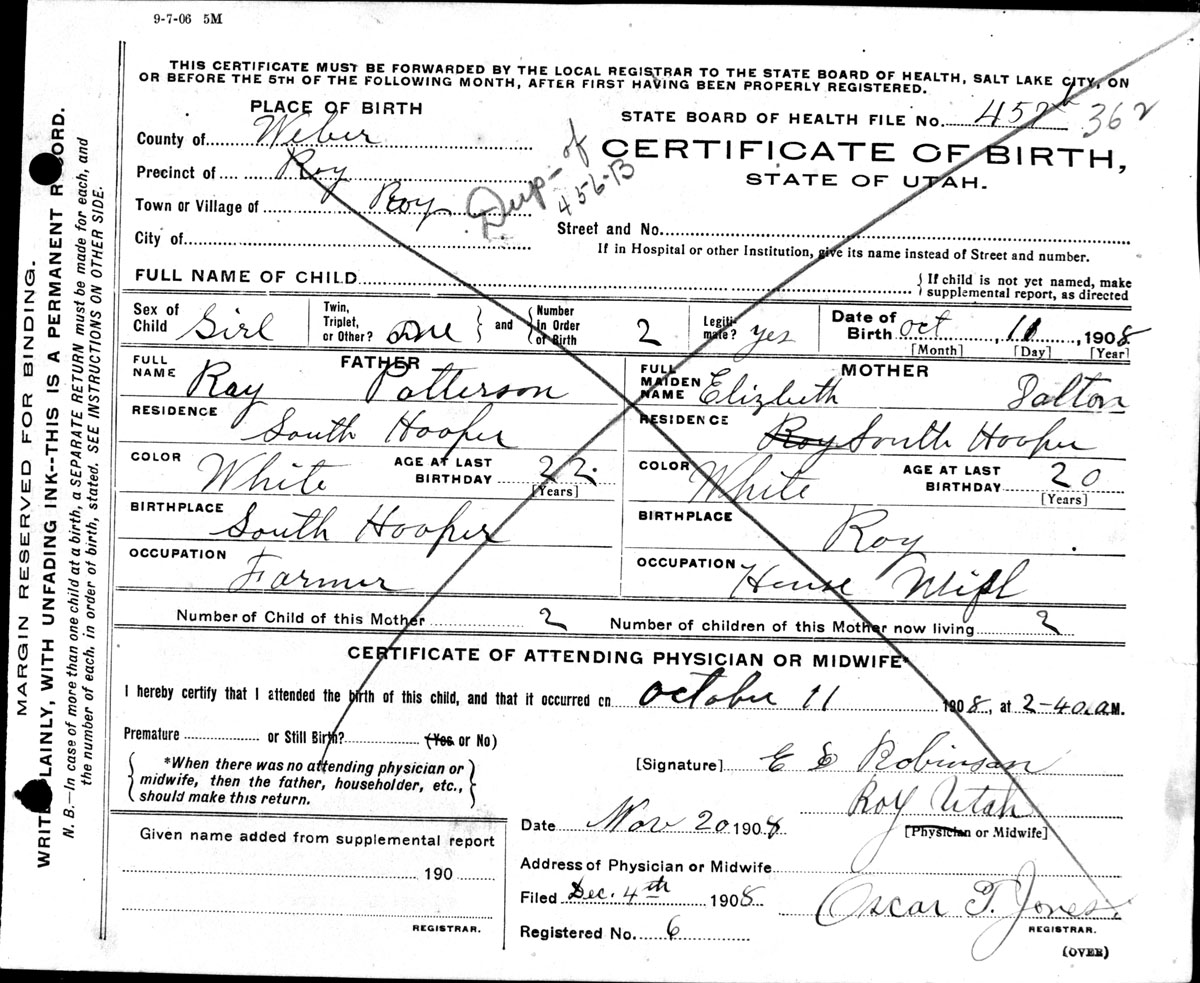 9-7-06 5M
THIS CERTIFICATE MUST BE FORWARDED BY THE LOCAL REGISTRAR TO THE STATE BOARD OF HEALTH, SALT LAKE CITY, ON
OR BEFORE THE 5TH OF THE FOLLOWING MONTH, AFTER FIRST HAVING BEEN PROPERLY REGISTERED.
PLACE OF BIRTH
County of Weber
Precinct of Roy
Town or Village of Roy
City of
Dup- of
456-B
STATE BOARD OF HEALTH FILE No. 452b 362
CERTIFICATE OF BIRTH,
STATE OF UTAH.
Street and No.
If in Hospital or other Institution, give its name instead of Street and number.
FULL NAME OF CHILD
{ If child is not yet named, make
supplemental report, as directed
Sex of Child Girl
Twin, Triplet, or Other? one } and { Number In Order of Birth 2
Legiti-mate? yes
Date of Birth oct 11, 1908
[Month] [Day] [Year]
FATHER
FULL NAME Ray Patterson
RESIDENCE South Hooper
COLOR White AGE AT LAST BIRTHDAY 22
[Years]
BIRTHPLACE South Hooper
OCCUPATION Farmer
MOTHER
FULL MAIDEN NAME Elizbeth Dalton
RESIDENCE Roy South Hooper
COLOR White AGE AT LAST BIRTHDAY 20
[Years]
BIRTHPLACE Roy
OCCUPATION House Wife
Number of Child of this Mother 2 Number of children of this Mother now living 2
CERTIFICATE OF ATTENDING PHYSICIAN OR MIDWIFE*
I hereby certify that I attended the birth of this child, and that it occurred on October 11 1908, at 2-40 a.M.
Premature or Still Birth? (Yes or No)
*When there was no attending physician or
midwife, then the father, householder, etc.,
should make this return.
Given name added from supplemental report
190
REGISTRAR.
[Signature] E Robinson
Roy Utah
Date Nov 20 1908 [Physician or Midwife]
Address of Physician or Midwife
Filed Dec. 4th 1908 Oscar T. Jones.
REGISTRAR.
Registered No. 6
(OVER)
MARGIN RESERVED FOR BINDING.
WRITE PLAINLY, WITH UNFADING INK--THIS IS A PERMANENT RECORD.
N. B.—In case of more than one child at a birth, a SEPARATE RETURN must be made for each, and
the number of each, in order of birth, stated. SEE INSTRUCTIONS ON OTHER SIDE.